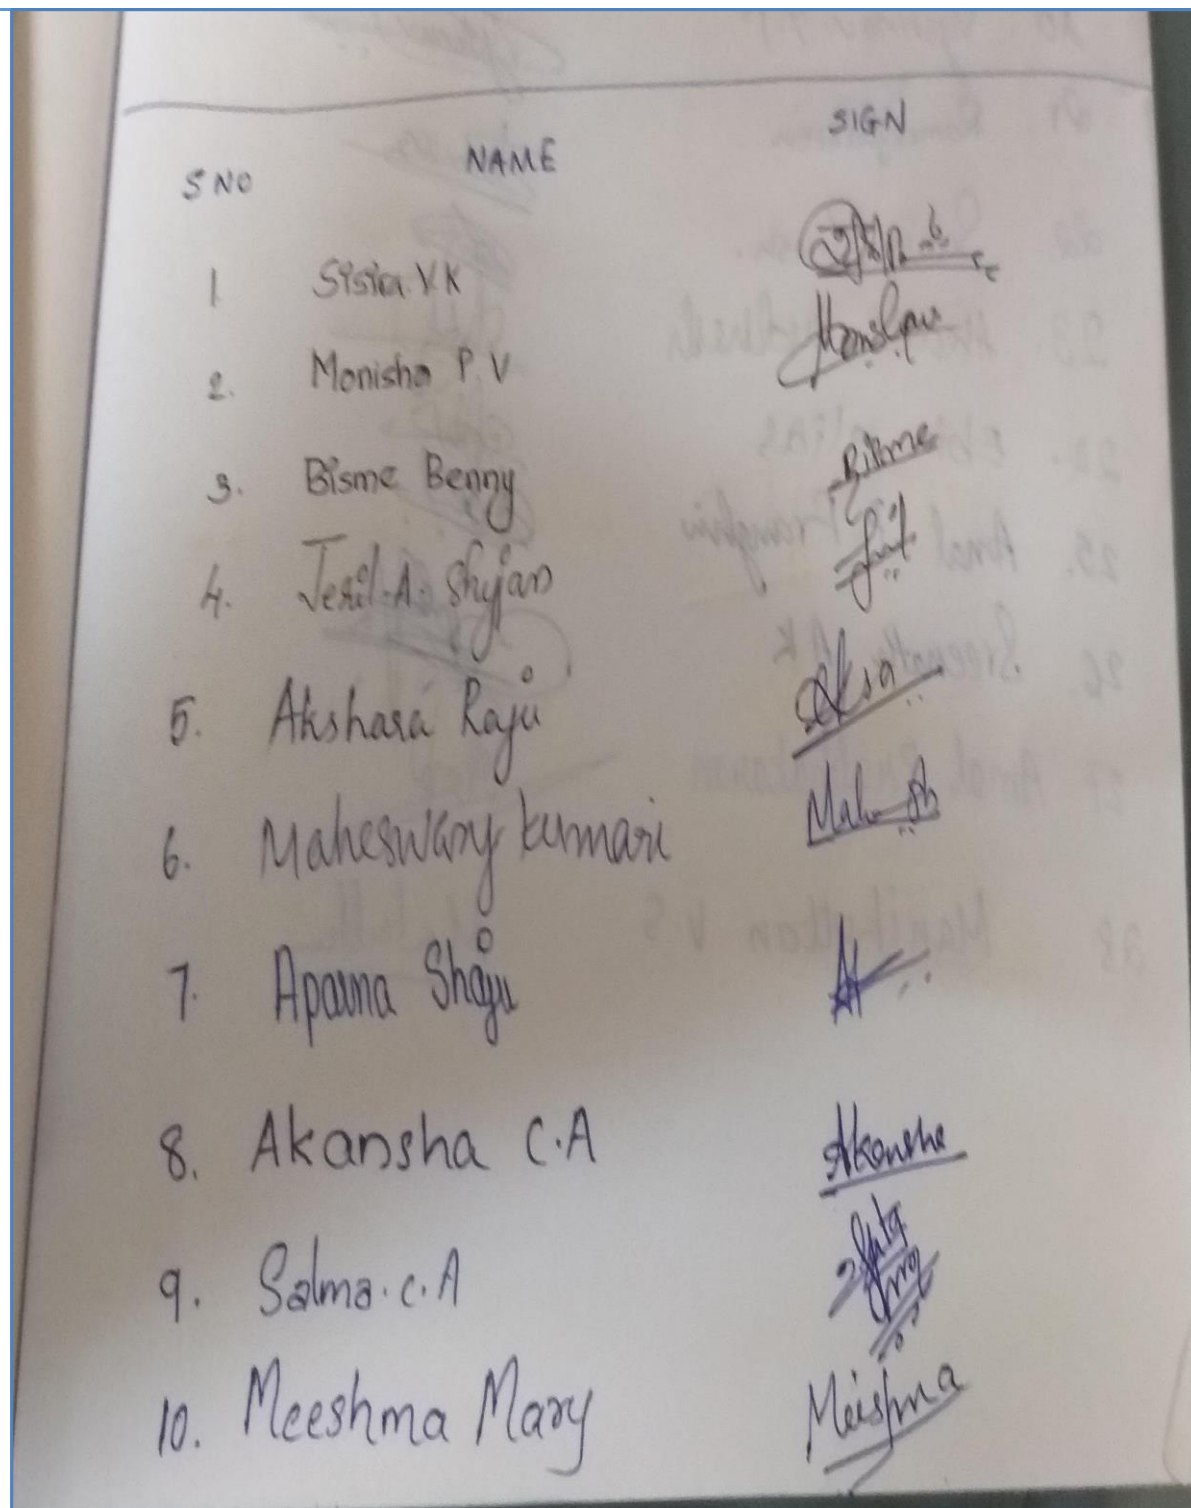 S NO NAME SIGN
1 Sisira V.K
2. Monisha P.V
3. Bisme Benny Bisme
4. Jesil.A.Shyjan
5. Akshara Raju
6. Maheswary kumari
7. Aparna Shaju
8. Akansha C.A Akansha
9. Salma.C.A
10. Meeshma Mary Meeshma